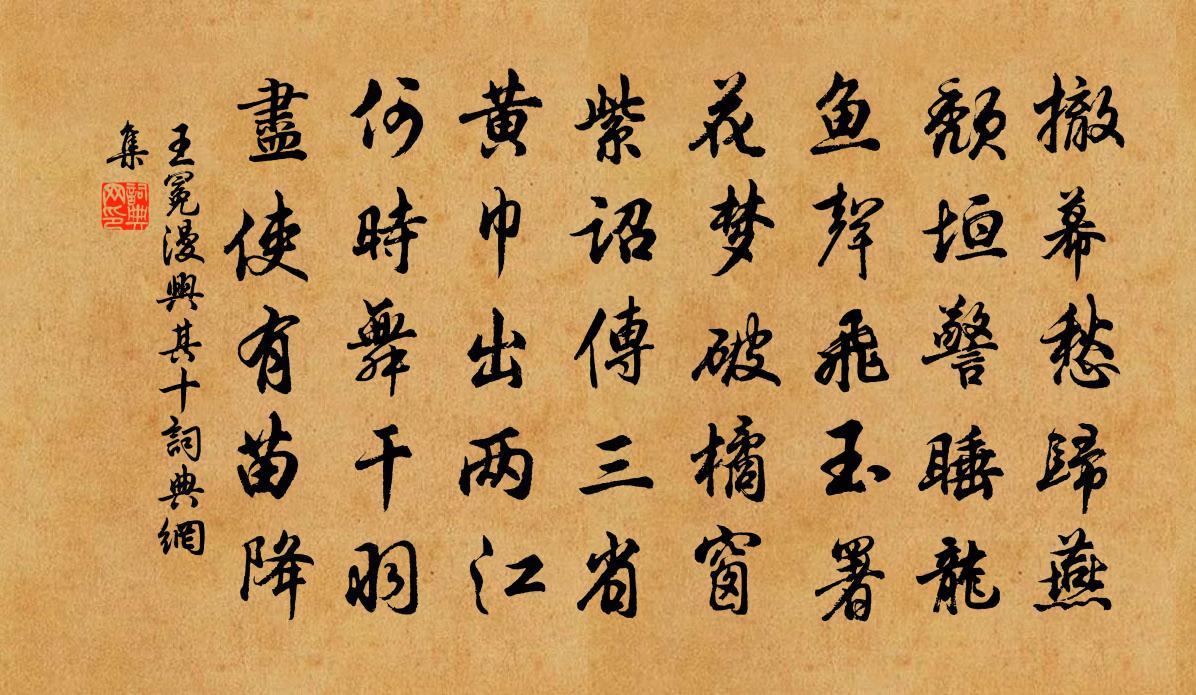 撤幕愁歸燕
頹垣警睡龍
魚聲飛玉署
花梦破橘窗
紫詔傳三省
黄巾出两江
何時舞干羽
盡使有苗降
王冕漫興其十詞典網
集
詞典网印